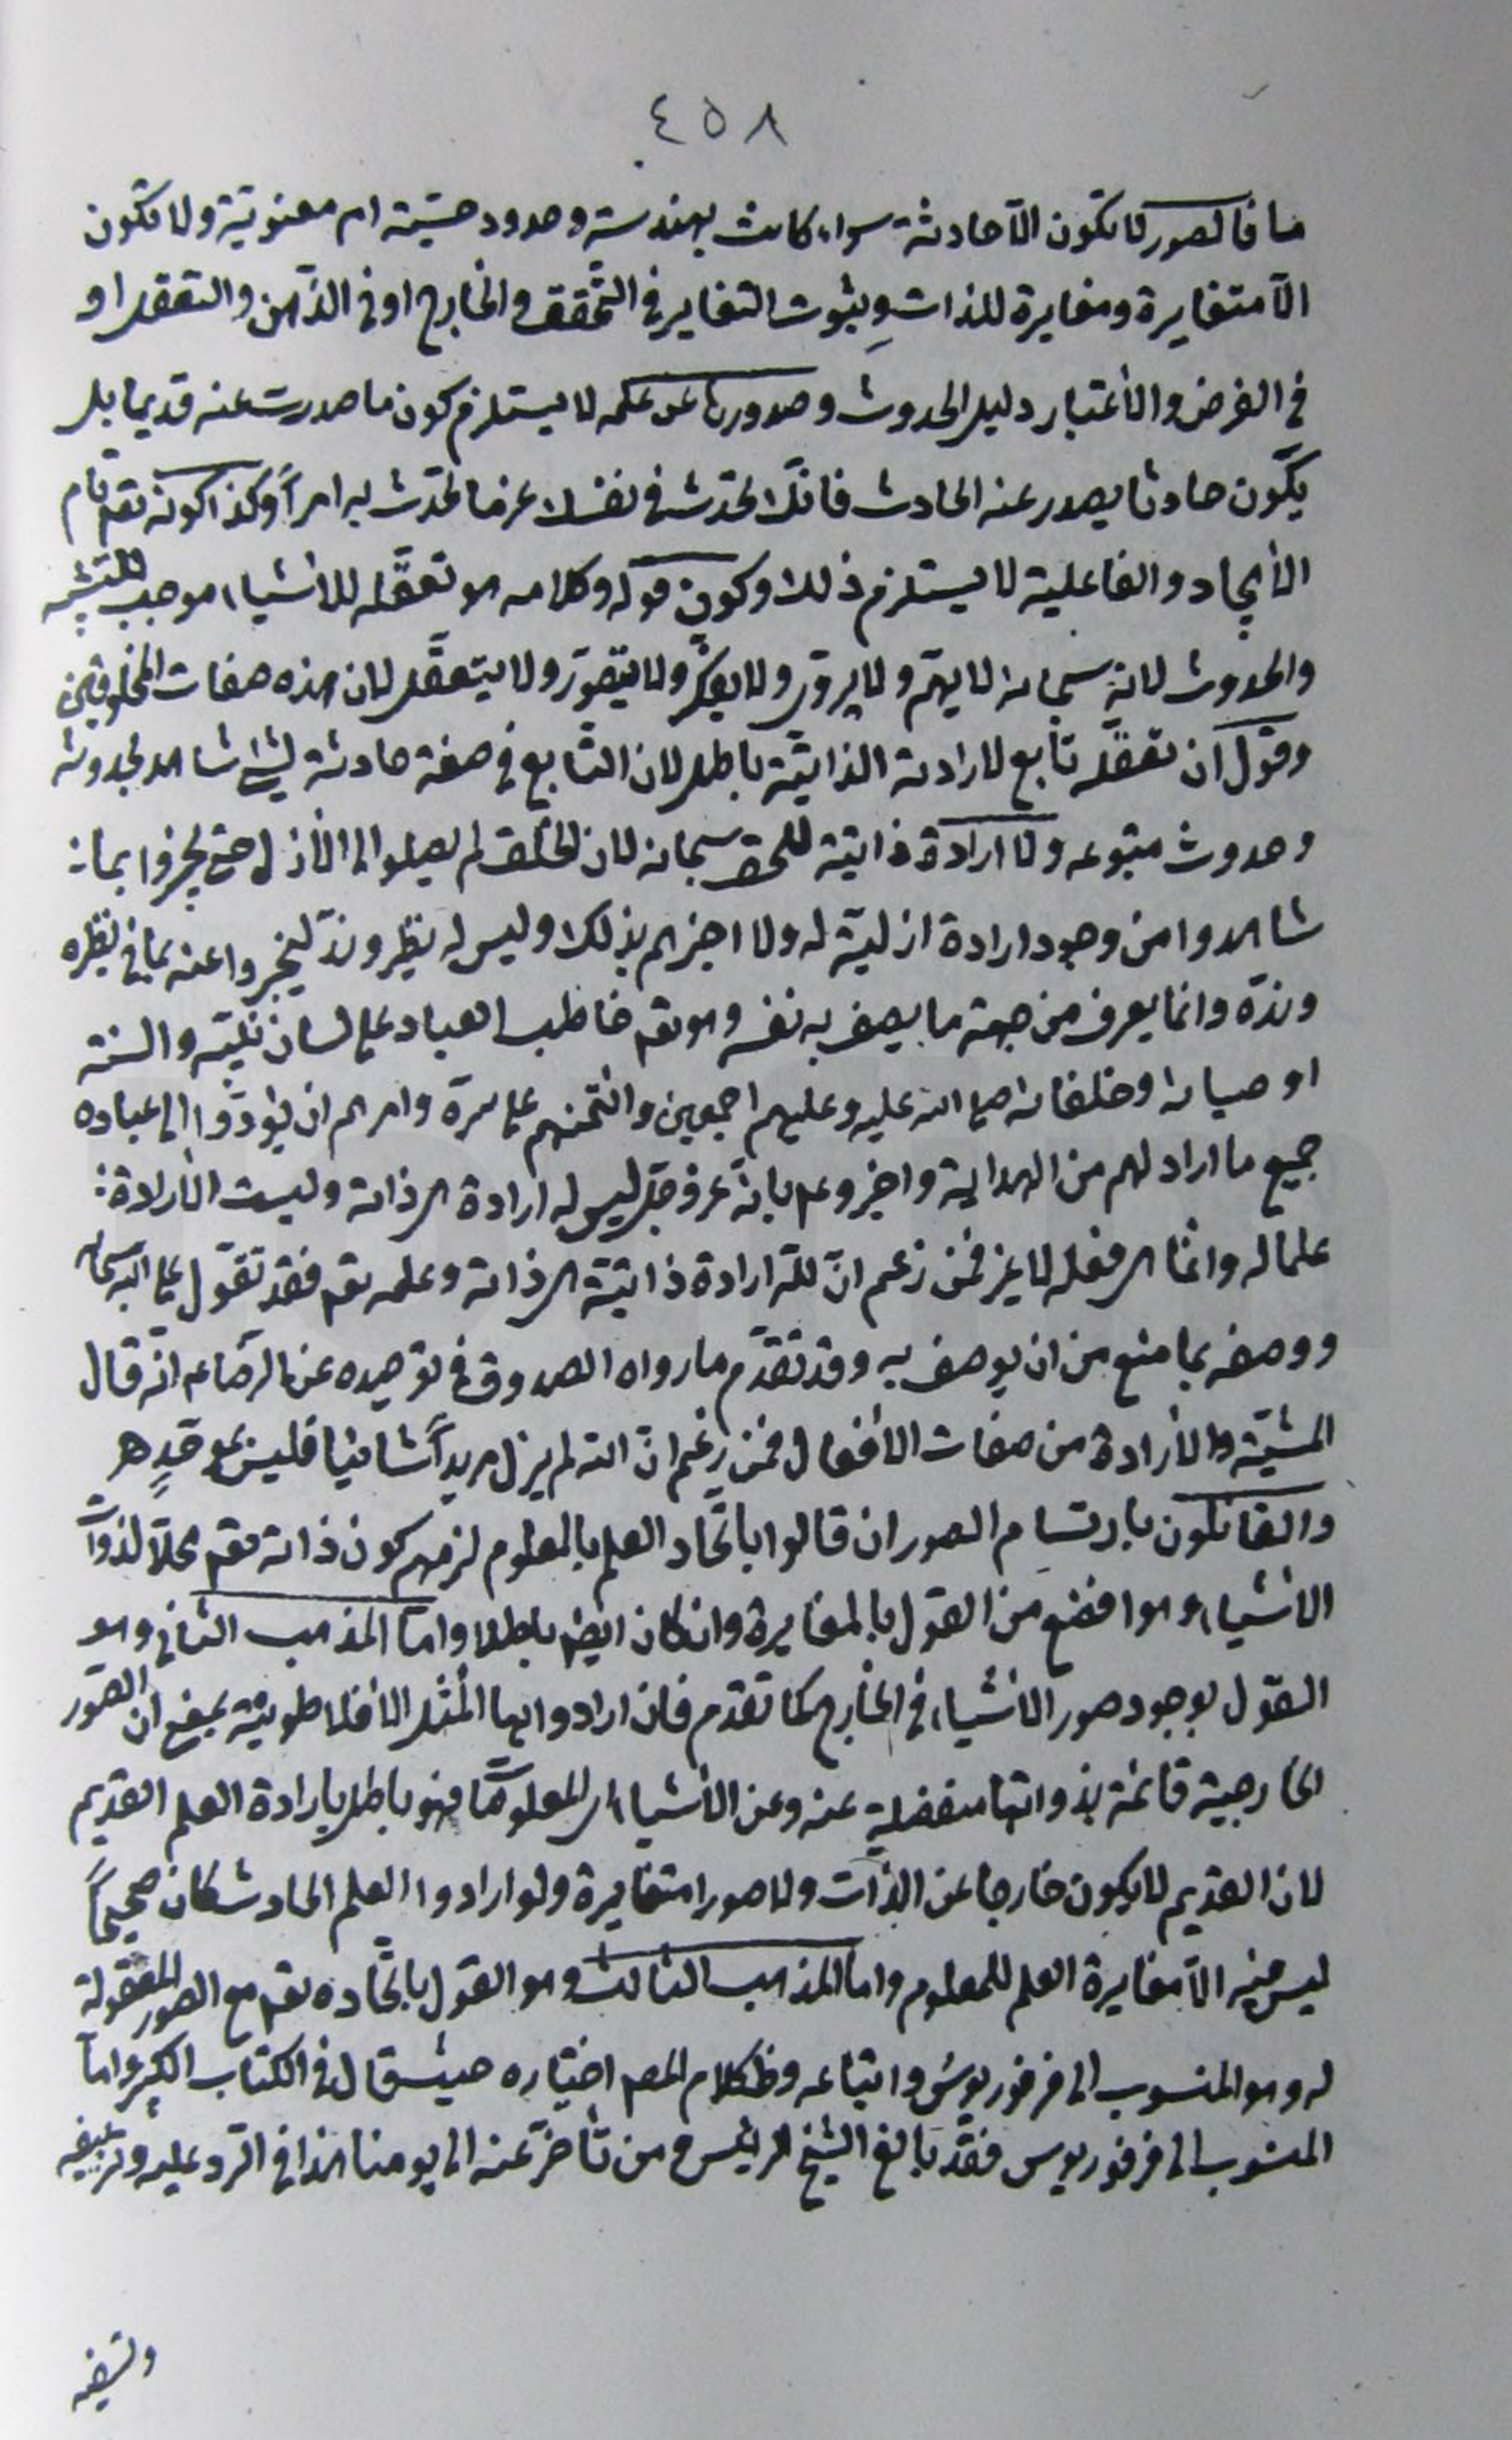 ٤٥٨
ما فالصور لا تكون الّا حادثة سواء كانت بهندسة وحدود حسّية ام معنويّة ولا تكون
الّا متغايرة ومغايرة للذات وثبوت التغاير في التحقّق في الخارج او في الذّهن والتعقل او
في الفرض والأعتبار دليل الحدوث وصدورها عن علمه لا يستلزم كون ما صدرت عنه قديما بل
يكون حادثا يصدر عنه الحادث فانّك تحدث في نفسك عزما تحدث به امراً وكذا كونه تعم تام
الأيجاد والفاعلية لا يستلزم ذلك وكون قوله وكلامه هو تعقّله للأشياء موجب للتشبيه
والحدوث لانه سبحانه لا يهمّ ولا يروّى ولا يفكّر ولا يتصوّر ولا يتعقّل لان هذه صفات المخلوقين
وقول ان تعقّله تابع لارادته الذاتيّة باطل لان التّابع في صفة حادثة لشئ شاهد بحدوثه
وحدوث متبوعه ولا ارادة ذاتية للحق سبحانه لان الخلق لم يصلوا الى الأزل حتى يخبروا بما
شاهدوا من وجود ارادة ازليّة له ولا اخبرهم بذلك وليس له نظير وندّ ليخبروا عنه بما في نظيره
وندّه وانما يعرف من جهة ما يصف به نفسه وهو تعم خاطب العباد على لسان نبيّه والسنة
اوصيائه وخلفائه صلى الله عليه وعليهم اجمعين وائتمنهم على سرّه وامرهم ان يؤدّوا الى عباده
جميع ما اراد لهم من الهداية واخبروهم بانّه عزّ وجلّ ليس له ارادة هي ذاته وليست الأرادة
علما له وانما هي فعله لا غير فمن زعم انّ للّه ارادة ذاتيّة هي ذاته وعلمه تعم فقد تقوّل على الله سبحانه
ووصفه بما منع من ان يوصف به وقد تقدّم ما رواه الصدوق في توحيده عن الرضا ع انّه قال
المشيّة والأرادة من صفات الأفعال فمن زعم انّ الله لم يزل مريداً شائيا فليس بموحّدٍ هـ
والقائلون بارتسام الصور ان قالوا باتّحاد العلم بالمعلوم لزمهم كون ذاته تعم محلّا لذوات
الأشياء وهو افضع من القول بالمغايرة وان كان ايضا باطلا وامّا المذهب الثاني وهو
القول بوجود صور الأشياء في الخارج كما تقدم فان ارادوا بها المُثُل الأفلاطونيّة بمعنى ان الصّور
الخارجية قائمة بذواتها منفصلة عنه وعن الأشياء اى المعلومات فهو باطل بارادة العلم القديم
لان القديم لا يكون خارجا عن الذّات ولا صورا متغايرة ولو ارادوا العلم الحادث كان صحيحاً
ليس فيه الّا مغايرة العلم للمعلوم وامّا المذهب الثالث وهو القول باتّحاده تعم مع الصور المعقولة
له وهو المنسوب الى فرفوريوس واتباعه وظ كلام المصـ اختياره حيث قال في الكتاب الكبير وامّا
المنسوب الى فرفوريوس فقد بالغ الشيخ الرئيس ومن تأخّر عنه الى يومنا هذا في الردّ عليه وتزييفه
وتسفيه